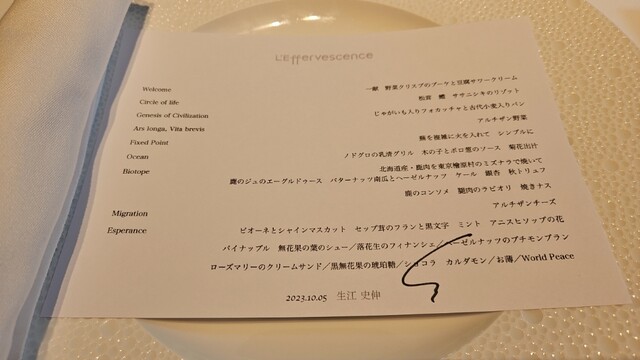 L'Effervescence
Welcome 一献 野菜クリスプのブーケと豆腐サワークリーム
Circle of life 松茸 鱧 ササニシキのリゾット
Genesis of Civilization じゃがいも入りフォカッチャと古代小麦入りパン
Ars longa, Vita brevis アルチザン野菜
Fixed Point 蕪を複雑に火を入れて シンプルに
Ocean ノドグロの乳清グリル 木の子とボロ葱のソース 菊花出汁
Biotope 北海道産・鹿肉を東京檜原村のミズナラで焼いて
鹿のジュのエーグルドゥース バターナッツ南瓜とヘーゼルナッツ ケール 銀杏 秋トリュフ
鹿のコンソメ 腿肉のラビオリ 焼きナス
Migration アルチザンチーズ
Esperance ピオーネとシャインマスカット セップ茸のフランと黒文字 ミント アニスヒソップの花
パイナップル 無花果の葉のシュー/落花生のフィナンシェ/ヘーゼルナッツのプチモンブラン
ローズマリーのクリームサンド/黒無花果の琥珀糖/ショコラ カルダモン/お薄/World Peace
2023.10.05 生江 史伸